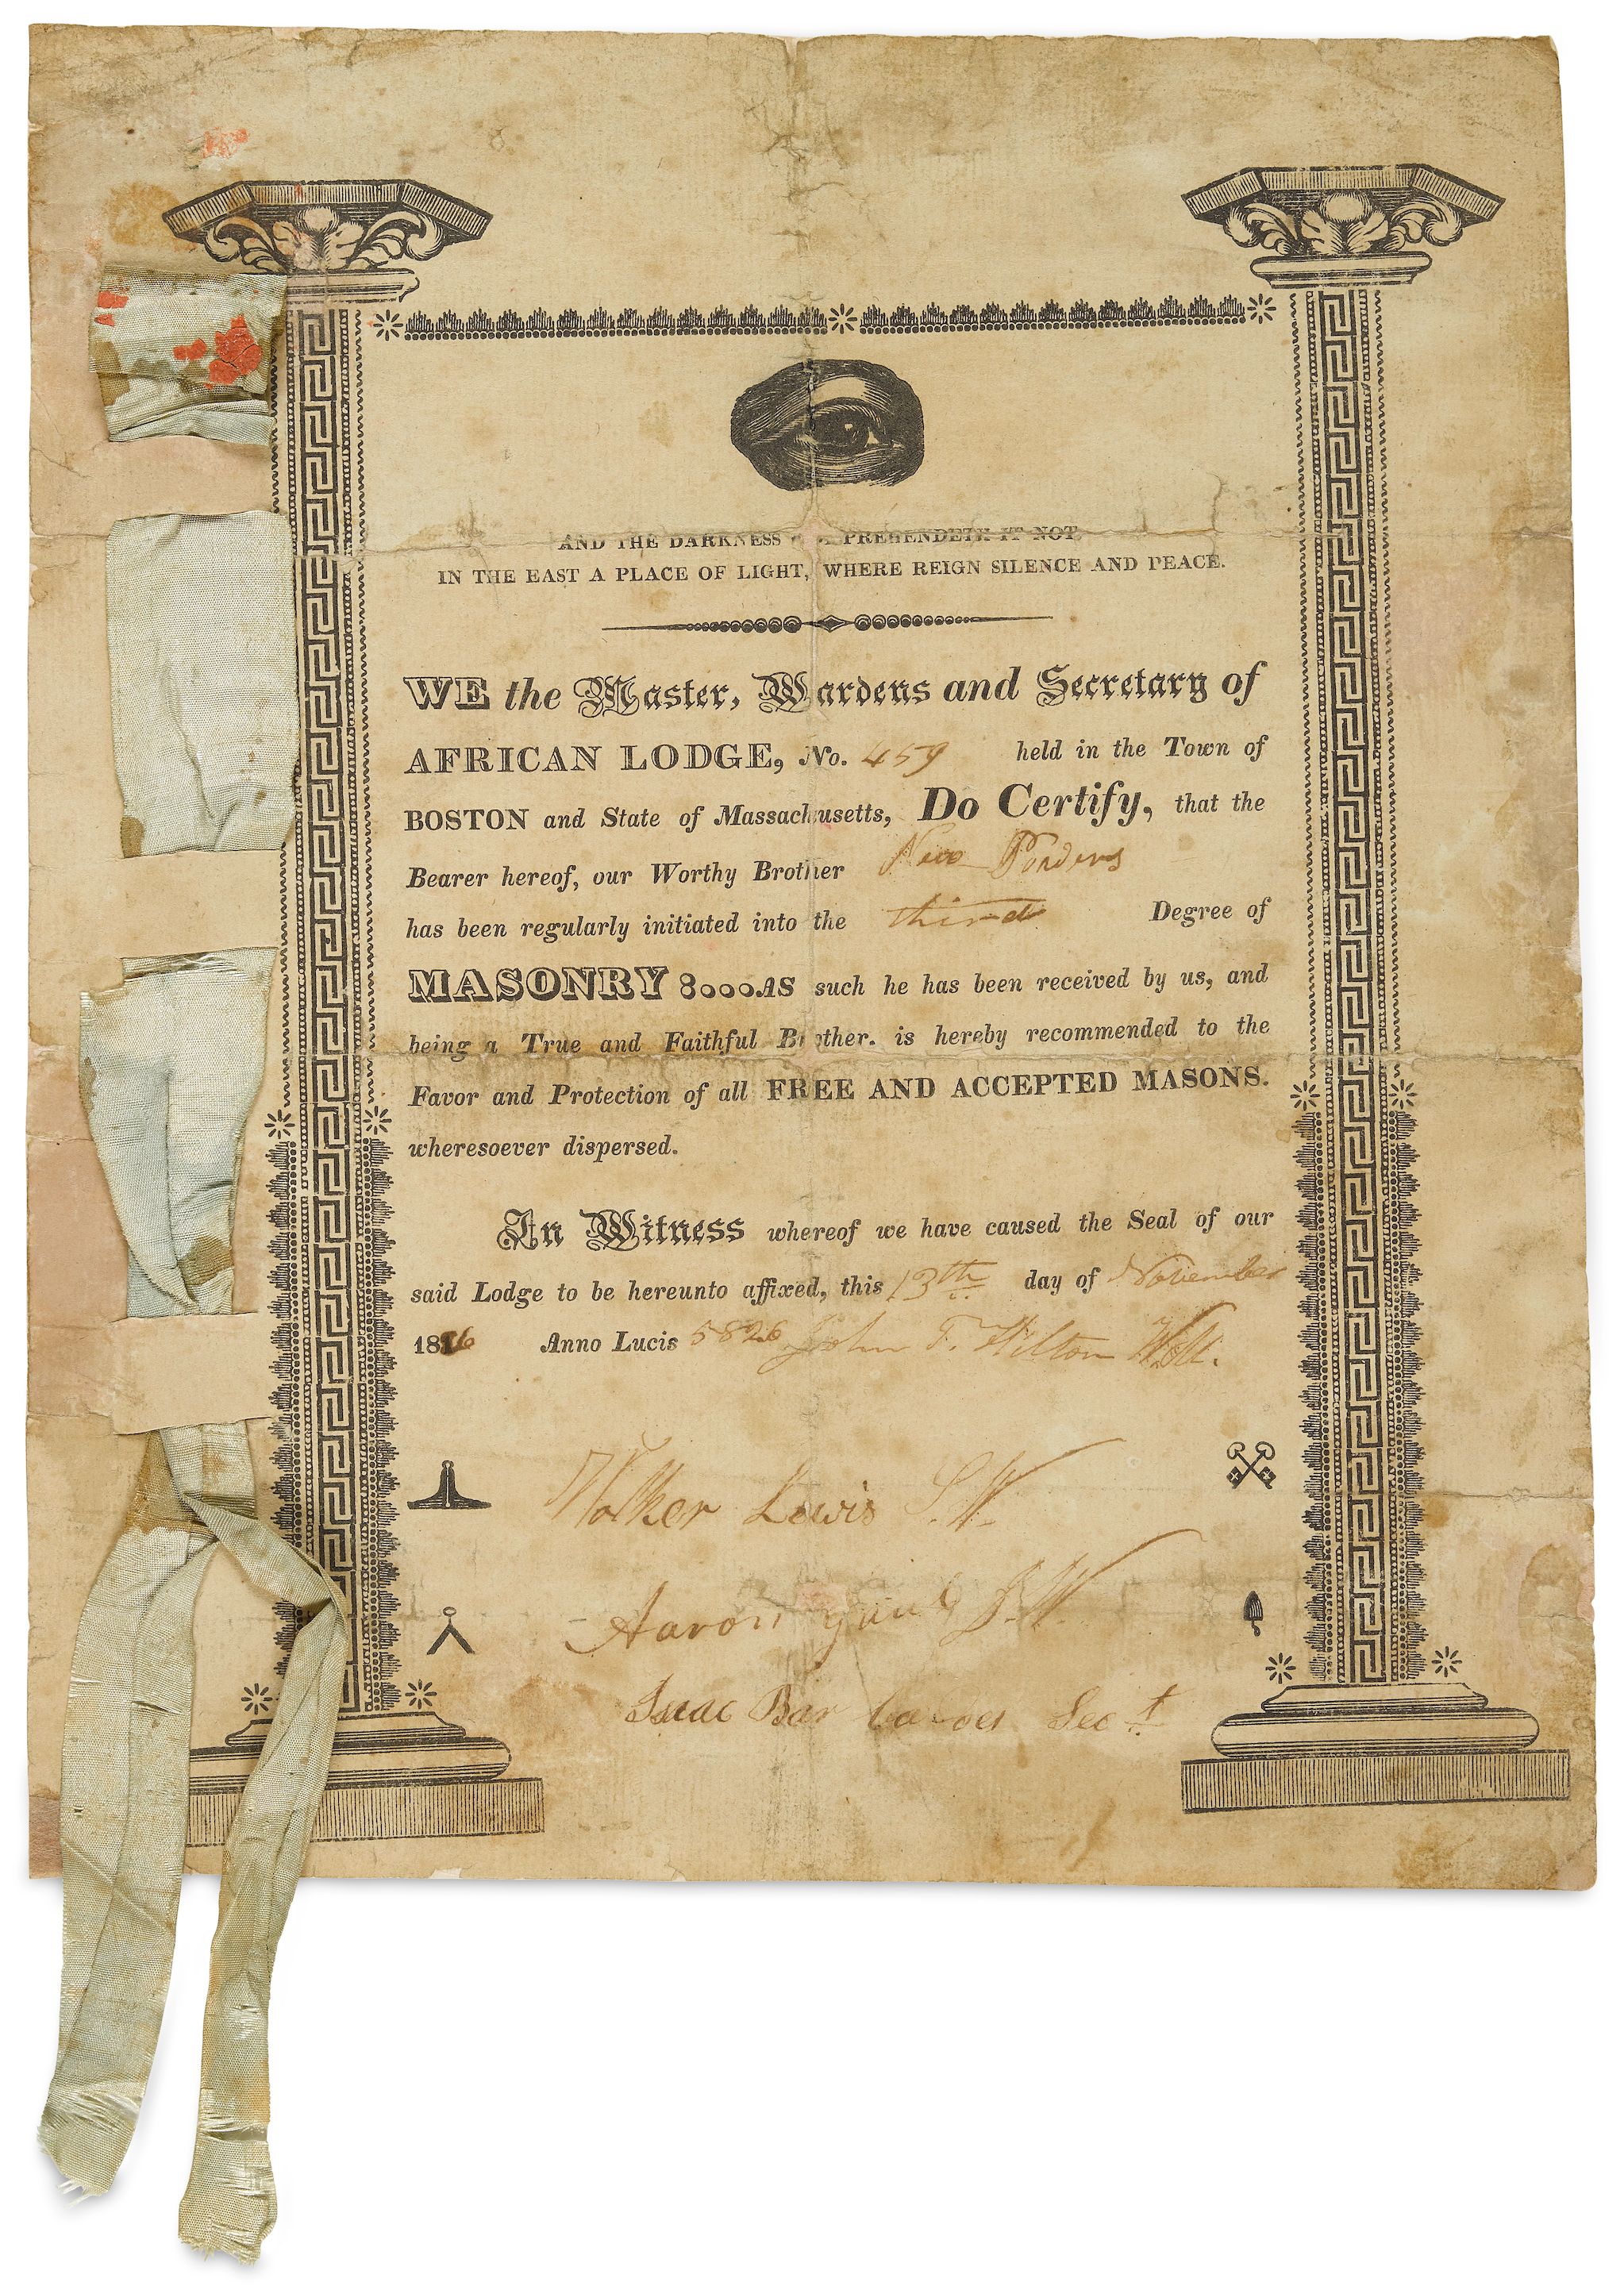 AND THE DARKNESS PREHENDETH IT NOT
IN THE EAST A PLACE OF LIGHT, WHERE REIGN SILENCE AND PEACE.
WE the Master, Wardens and Secretary of
AFRICAN LODGE, No. 459 held in the Town of
BOSTON and State of Massachusetts, Do Certify, that the
Bearer hereof, our Worthy Brother
has been regularly initiated into the third Degree of
MASONRY 8oooAS such he has been received by us, and
being a True and Faithful Brother. is hereby recommended to the
Favor and Protection of all FREE AND ACCEPTED MASONS.
wheresoever dispersed.
In Witness whereof we have caused the Seal of our
said Lodge to be hereunto affixed, this 13th day of November
1826 Anno Lucis 5826 John T. Hilton
Walker Lewis S.W.
Aaron J.W
Isaac Sect